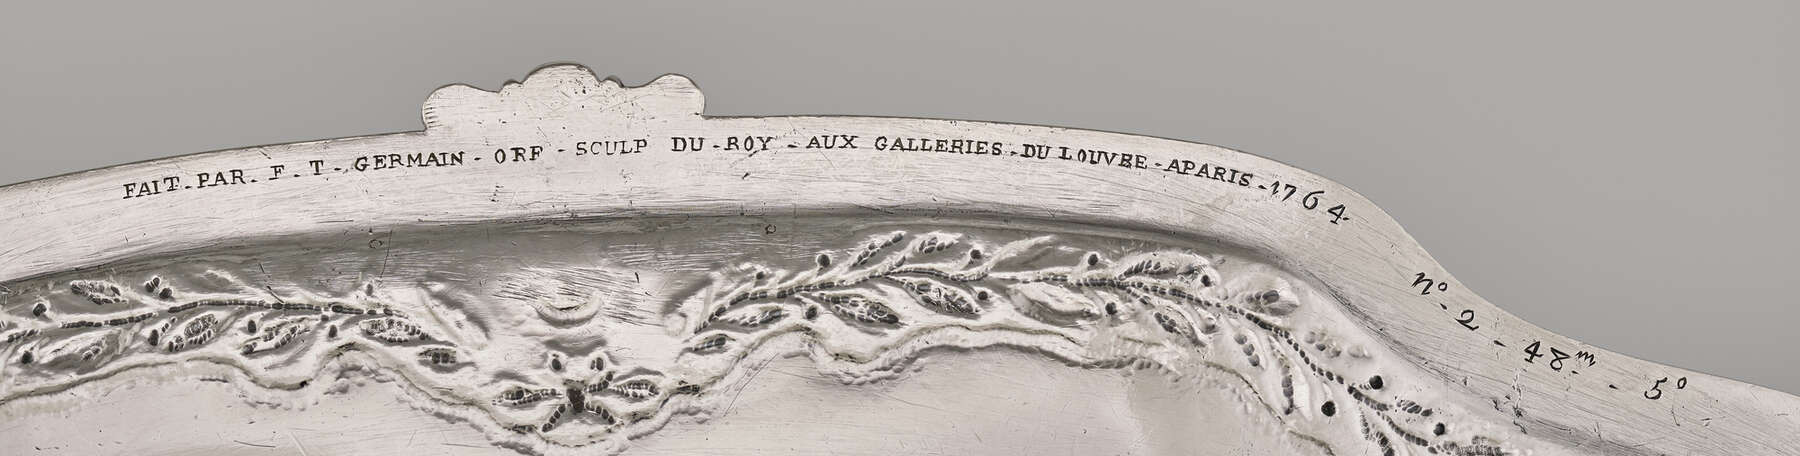 FAIT - PAR - F - T - GERMAIN - ORF - SCULP DU - ROY - AUX GALLERIES - DU LOUVRE - APARIS - 1764
nº - 2 - 48m - 5º